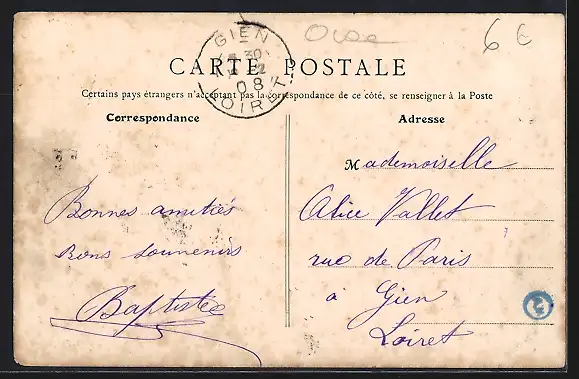 Oise
6 €
GIEN
30
12
08
LOIRET
CARTE POSTALE
Certains pays étrangers n'acceptant pas la correspondance de ce côté, se renseigner à la Poste
Correspondance
Adresse
Bonnes amitiés
Bons souvenirs
Baptiste
Mademoiselle
Alice Vallet
rue de Paris
à Gien
Loiret